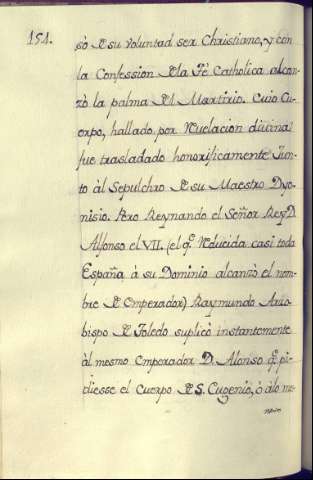 151.
sò de su voluntad ser Christiano, y con
la Confession de la Fè Catholica alcan-
zò la palma del Martirio. Cuio Cu-
erpo, hallado por Revelacion divina
fue trasladado honorificamente Jun-
to àl Sepulchro de su Maestro Dyo-
nisio. Pero Reynando el Señor Rey D.
Alfonso el VII. (el q.e Reducida casi toda
España à su Dominio alcanzò el nom-
bre de Emperador) Raymundo Arzo-
bispo de Toledo suplicò instantemente
àl mesmo Emperador D. Alonso q.e pi-
diesse el Cuerpo de S. Eugenio, ò àlo me-
nos